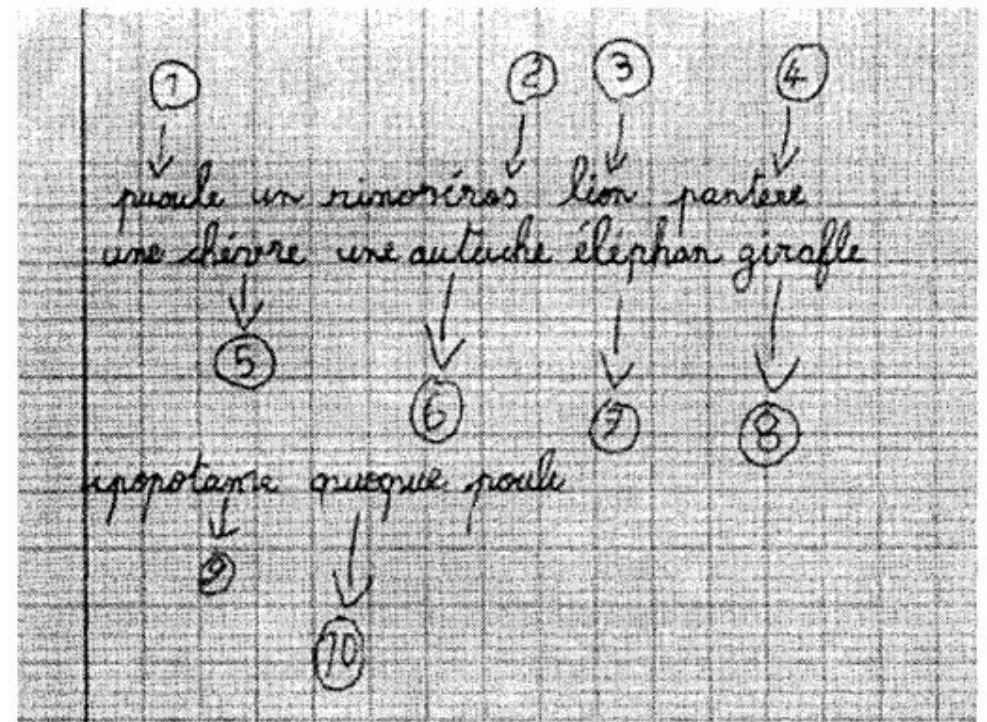 1 2 3 4
puoule un rinoséros lion pantere
une chévre une autuche éléphan girafle
5
6 7 8
ipopotame quoque poule
9
10